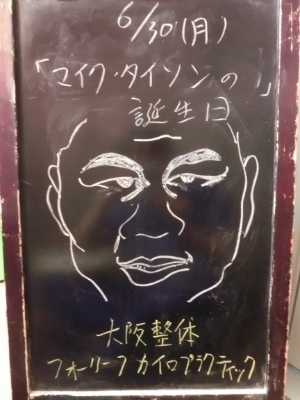 6/30(月)
「マイク・タイソンの」
誕生日
大阪整体
フォーリーフカイロプラクティック